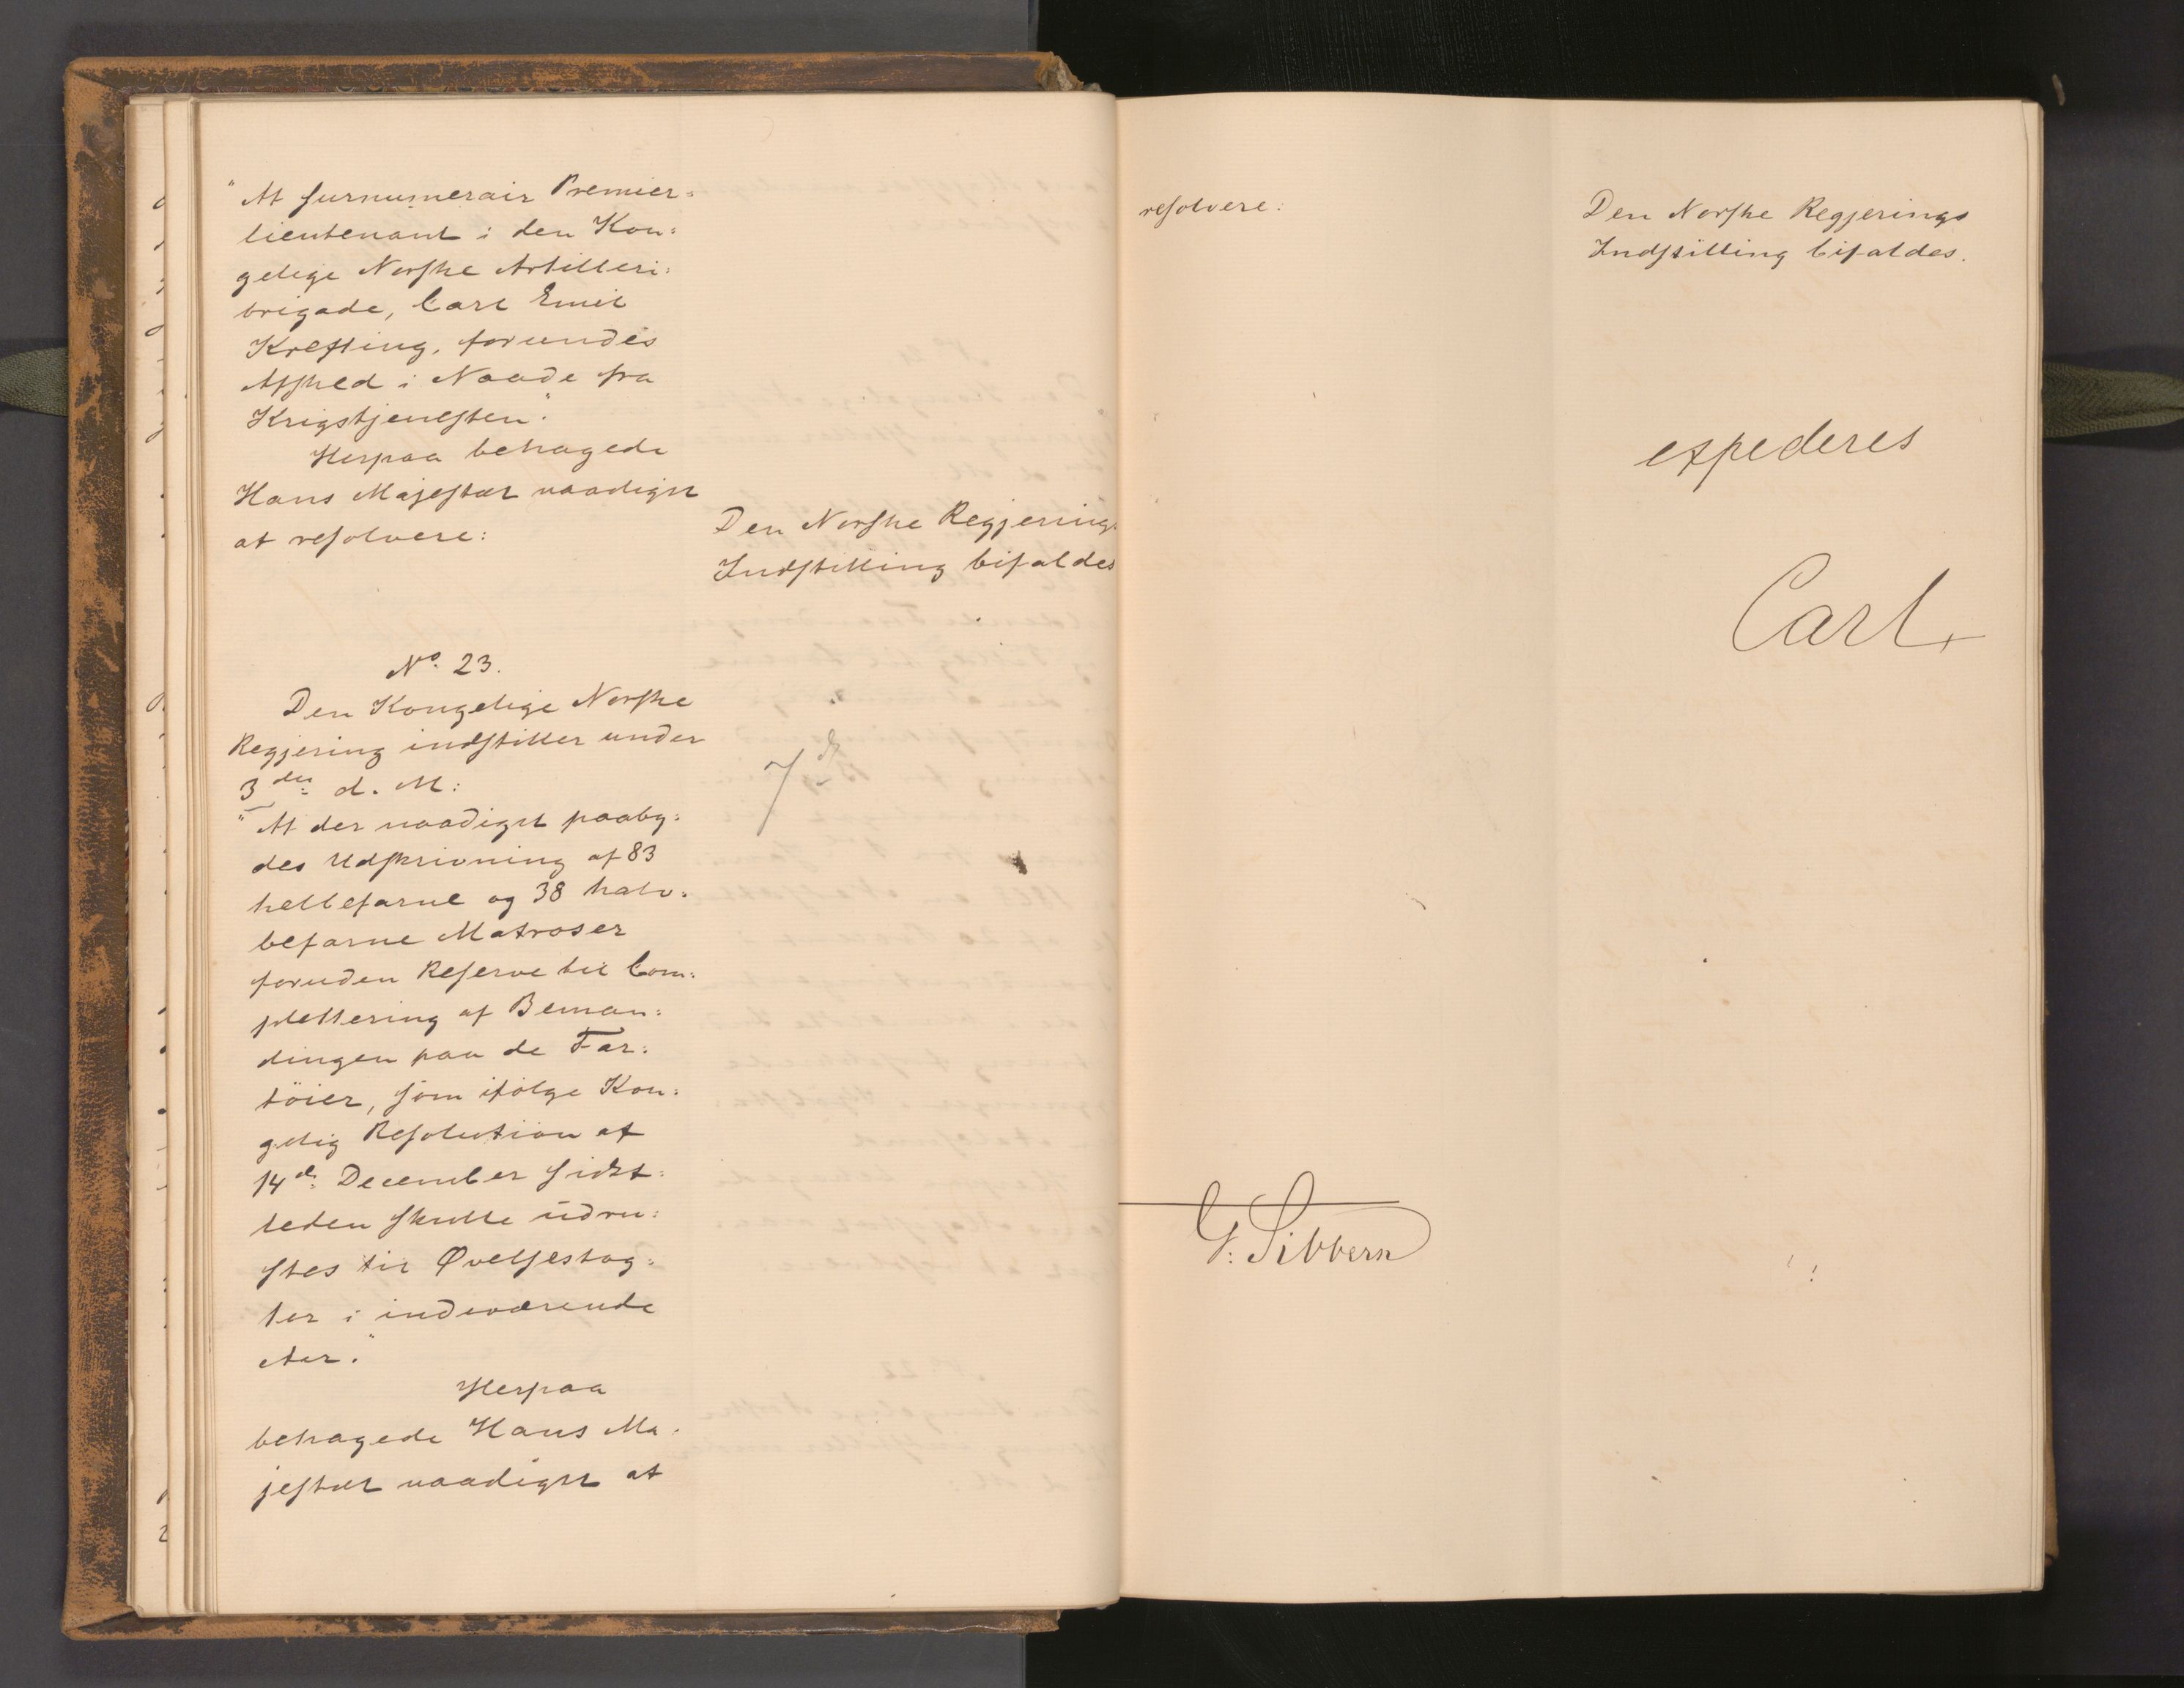 "At surnumerair Premier=
lieutenant i den Kon:
gelige Norske Artilleri:
brigade, Carl Emil
Krefting, forundes
Afsked i Naade fra
Krigstjenesten".
Herpaa behagede
Hans Majestæt naadigst
at resolvere:
Den Norske Regjerings
Indstilling bifaldes
No. 23.
Den Kongelige Norske
Regjering indstiller under
3die d. M:
"At der naadigst paaby:
des Udskrivning af 83
helbefarne og 38 halv:
befarne Matroser
foruden Reserve til Com:
plettering af Beman:
dingen paa de Far:
töier, som ifölge Kon:
gelig Resolution af
14de December sidst:
leden skulle udru:
stes til Øvelsestog:
ter i indeværende
Aar."
Herpaa
behagede Hans Ma:
jestæt naadigst at
7de
resolvere:
Den Norske Regjerings
Indstilling bifaldes.
expederes
Carl
G. Sibbern